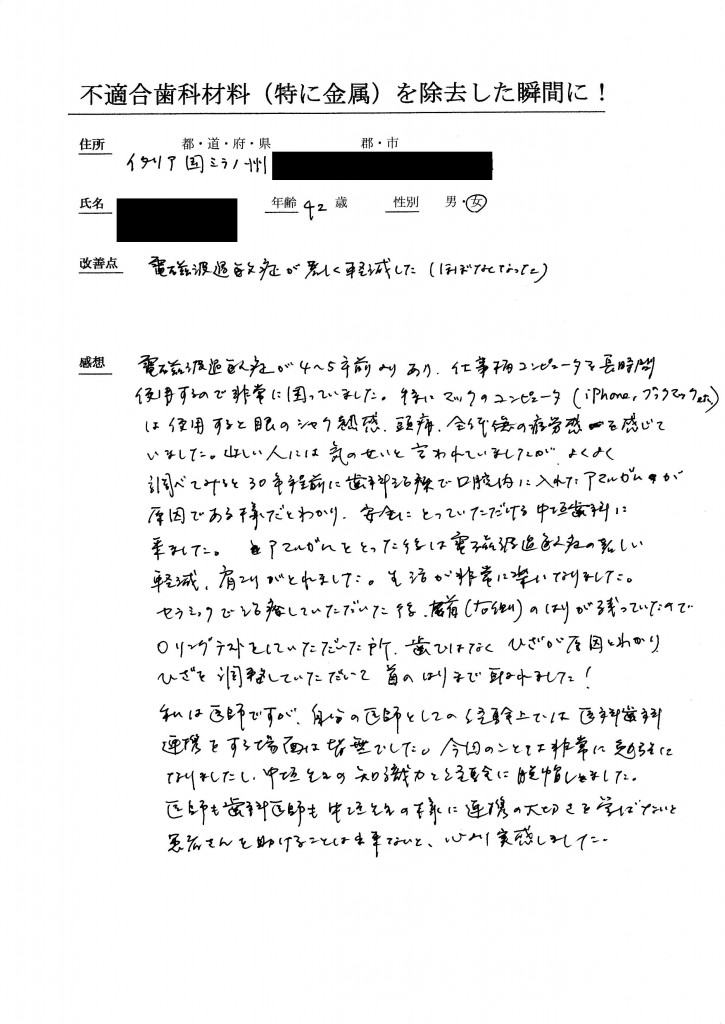 不適合歯科材料（特に金属）を除去した瞬間に！
住所 都・道・府・県 郡・市
イタリア国ミラノ州
氏名 年齢 42 歳 性別 男・女
改善点 電磁波過敏症が著しく軽減した（ほぼなくなった）
感想 電磁波過敏症が4〜5年前よりあり、仕事柄コンピュータを長時間
使用するので非常に困っていました。特にマックのコンピュータ（iPhone，ブックマック etc）
は使用すると眼のシャク熱感、頭痛、全身倦怠の疲労感を感じて
いました。詳しい人には気のせいと言われていましたが、よくよく
調べてみると30年程前に歯科治療で口腔内に入れたアマルガムが
原因である様だとわかり、安全にとっていただける中垣歯科に
来ました。アマルガムをとった後は電磁波過敏症の著しい
軽減、肩こりがとれました。生活が非常に楽になりました。
セラミックで治療していただいた後、首（右側）のはりが残っていたので
Oリングテストをしていただいた所、歯ではなくひざが原因とわかり
ひざを調整していただいて首のはりまで取れました！
私は医師ですが、自分の医師としての経験上では医科歯科
連携をする場面は皆無でした。今回のことは非常に勉強に
なりましたし、中垣先生の知識力と経験に脱帽しました。
医師も歯科医師も中垣先生の様に連携の大切さを学ばないと
患者さんを助けることは出来ないと、心より実感しました。